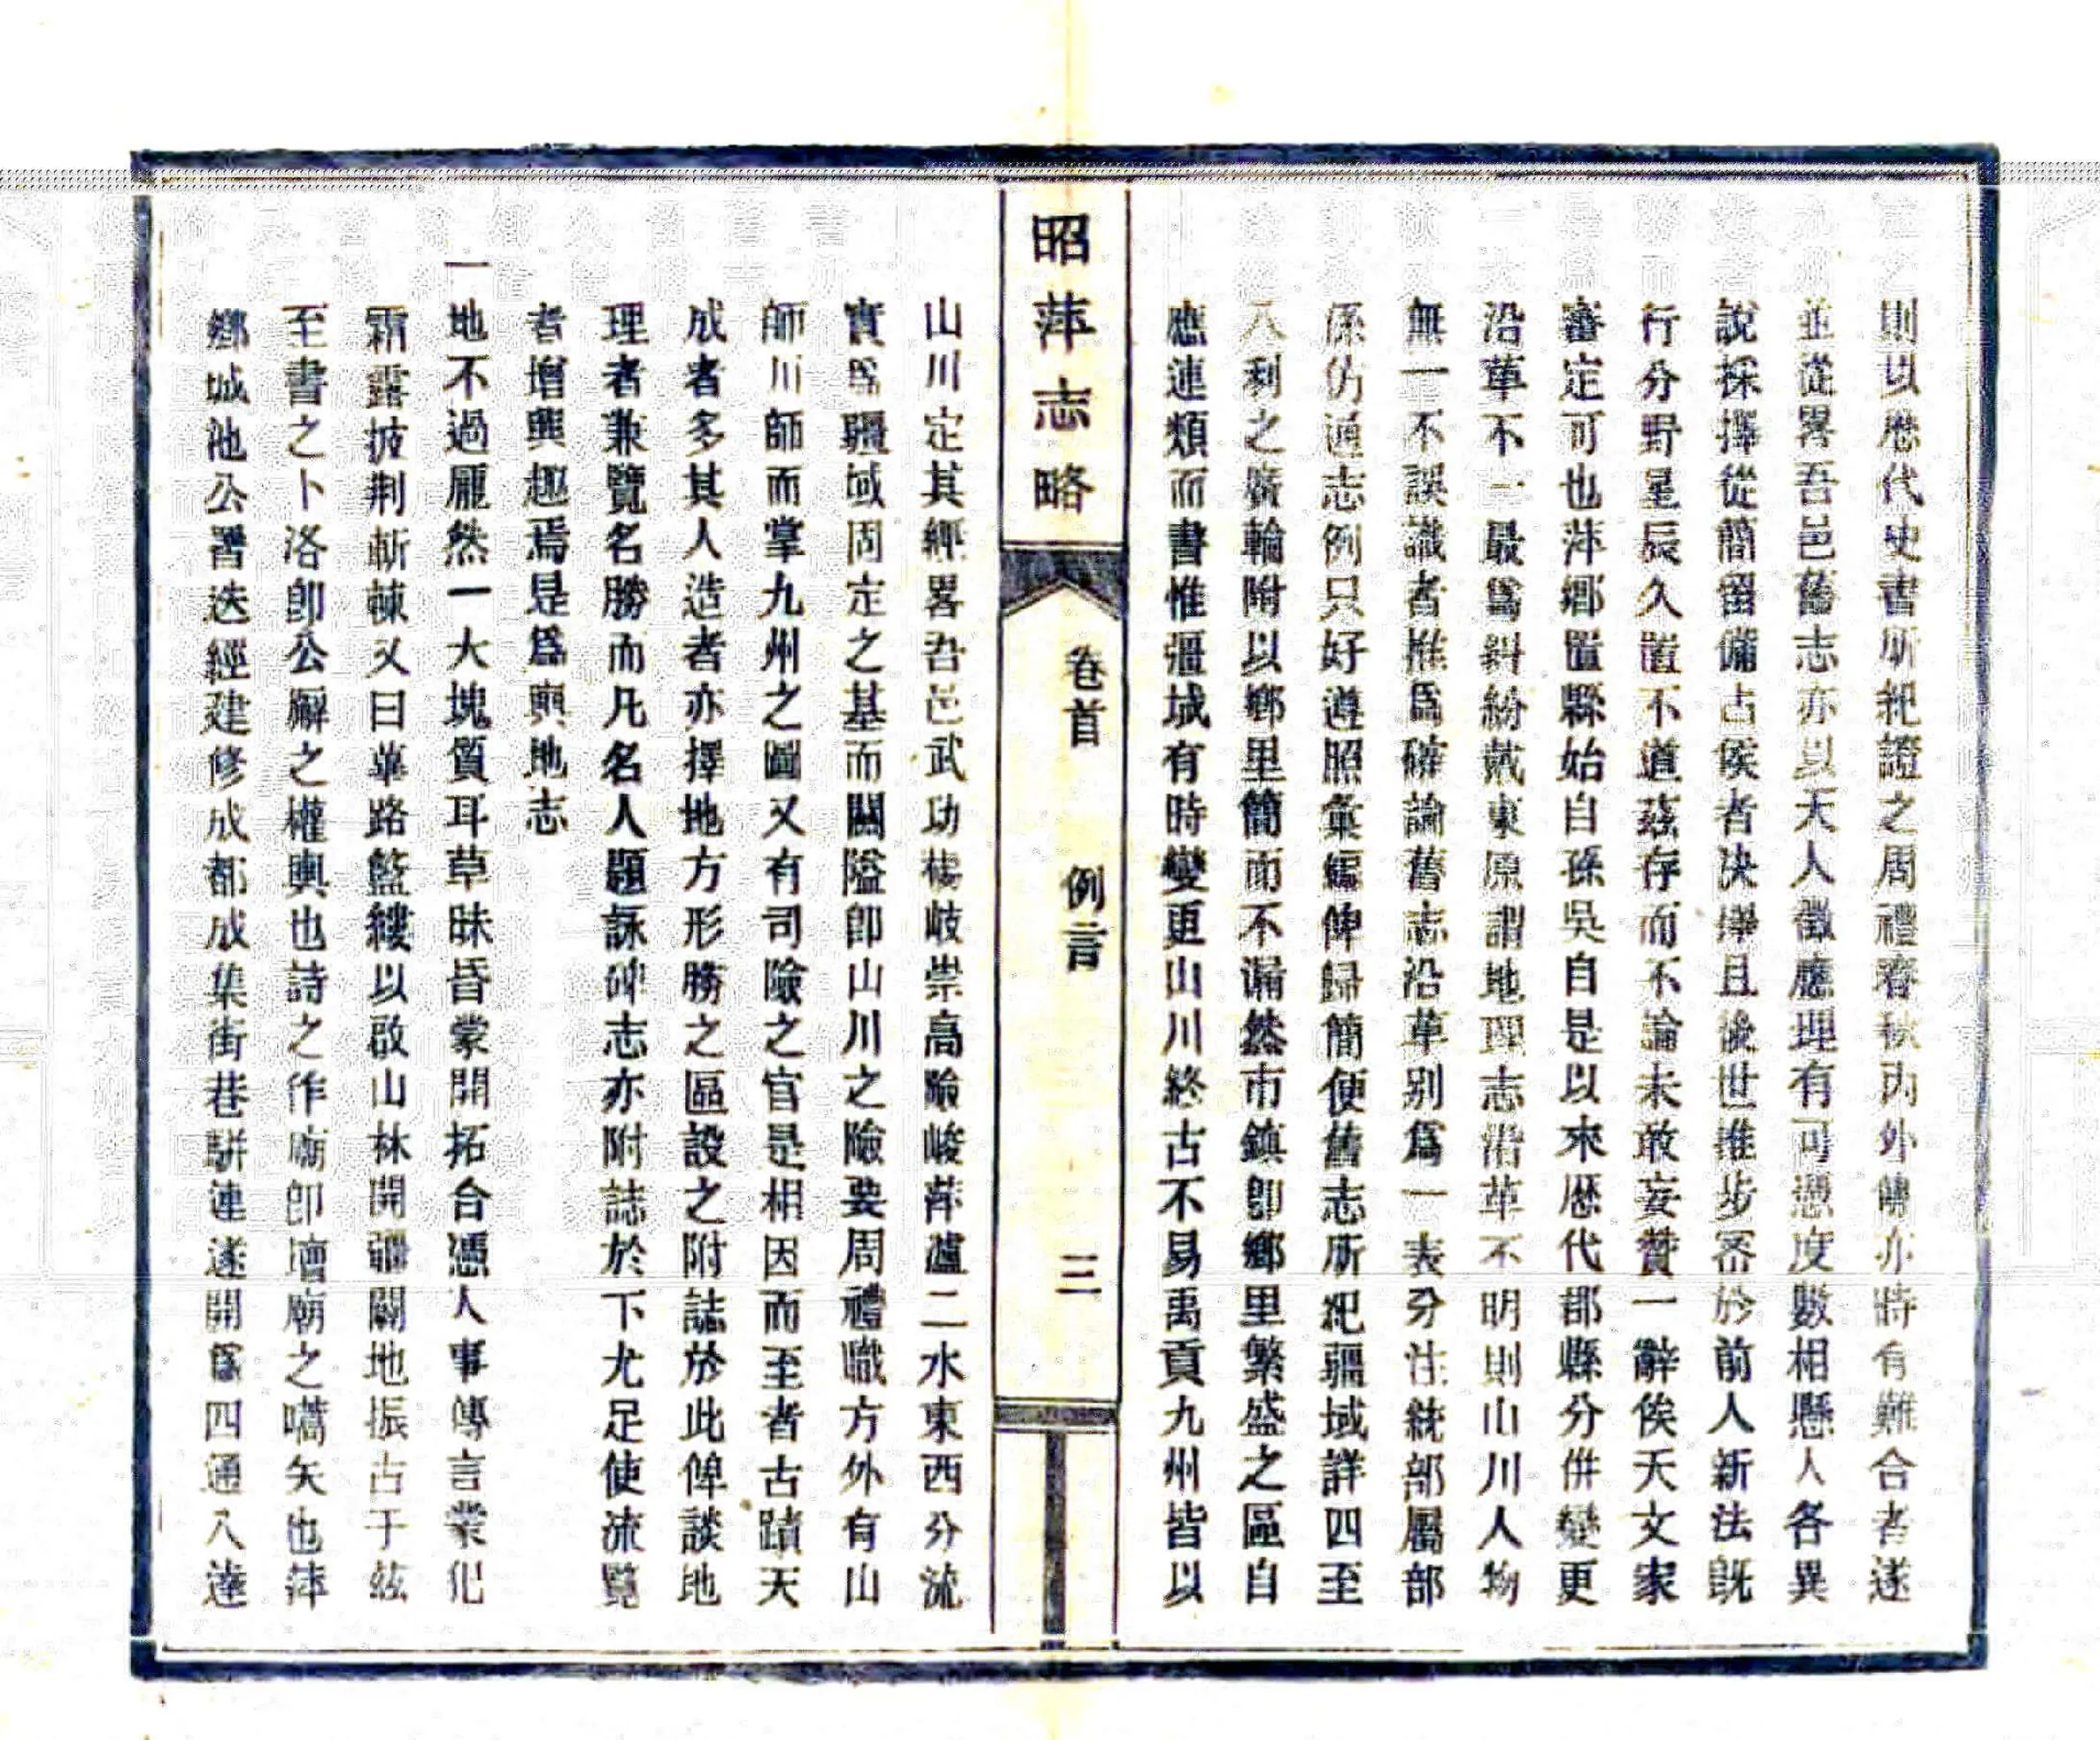 則以歷代史書所紀證之周禮春秋內外傳亦時有難合者遂
並從畧吾邑舊志亦以天人徵應理有可憑度數相懸人各異
說採擇從簡畱備占候者决擇且後世推步密於前人新法旣
行分野星辰久置不道茲存而不論未敢妄贊一辭俟天文家
審定可也萍鄉置縣始自孫吳自是以來歷代郡縣分併變更
沿革不一最爲糾紛戴東原謂地理志沿革不明則山川人物
無一不誤識者推爲確論舊志沿革别爲一表分注統部屬部
係仿通志例只好遵照彙編俾歸簡便舊志所紀疆域詳四至
八到之廣輪附以鄉里簡而不漏然市鎮卽鄉里繁盛之區自
應連類而書惟疆域有時變更山川終古不易禹貢九州皆以
昭萍志略
卷首 例言 三
山川定其經畧吾邑武功楊岐崇高險峻萍瀘二水東西分流
實爲疆域固定之基而關隘卽山川之險要周禮職方外有山
師川師而掌九州之圖又有司險之官是相因而至者古蹟天
成者多其人造者亦擇地方形勝之區設之附誌於此俾談地
理者兼覽名勝而凡名人題詠碑志亦附誌於下尤足使流覽
者增興趣焉是爲輿地志
一地不過龐然一大塊質耳草昧昏蒙開拓合憑人事傳言棠圮
霜露披荆斬棘又曰蓽路籃縷以啟山林開疆闢地振古于茲
至書之卜洛卽公廨之權輿也詩之作廟卽壇廟之嚆矢也萍
鄉城池公署迭經建修成都成集街巷駢連遂開爲四通八達